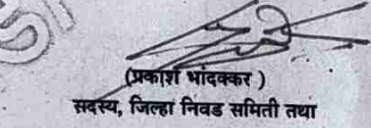 (प्रकाश भांदक्कर )
सदस्य, जिल्हा निवड समिती तथा